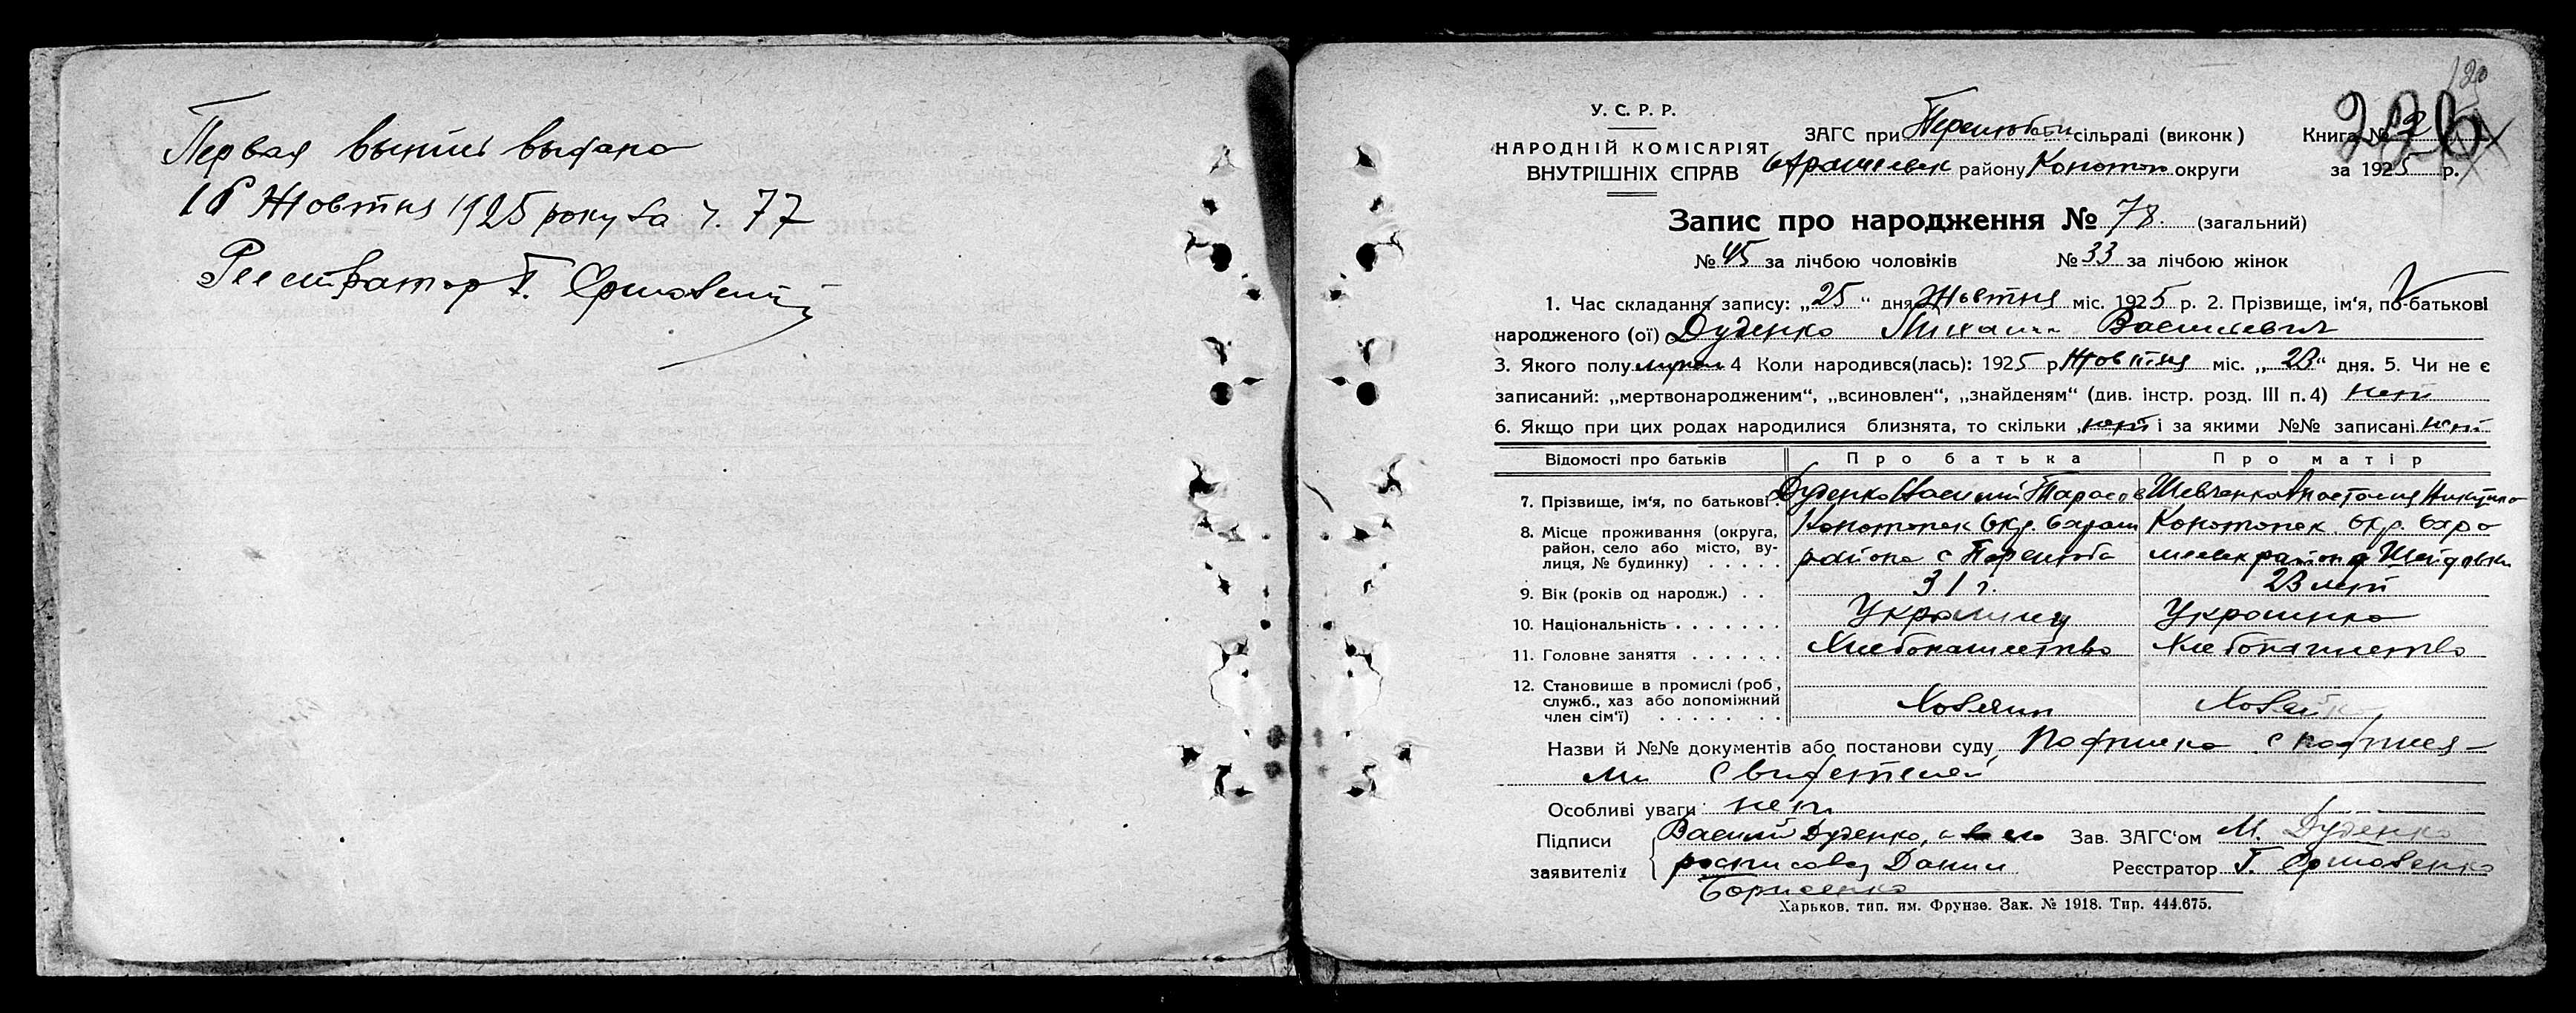 Первая выпись выдана
16 Жовтня 1925 року за ч. 77
Реєстратор Г.
120
У. С. Р. Р.
НАРОДНІЙ КОМІСАРІЯТ
ВНУТРІШНІХ СПРАВ
ЗАГС при Перелюбск сільраді (виконк)
Охрамиевск району Конотоп округи
Книга №
за 1925 р.
Запис про народження № 78. (загальний)
№ 45 за лічбою чоловіків № 33 за лічбою жінок
1. Час складання запису: „25“ дня Жовтня міс. 1925 р. 2. Прізвище, ім'я, по-батькові
народженого (ої) Дуденко Михаил Васильевич
3. Якого полу 4 Коли народився(лась): 1925 р Жовтня міс. „23“ дня. 5. Чи не є
записаний: „мертвонародженим“, „всиновлен“, „знайденям“ (див. інстр. розд. III п. 4) нет
6. Якщо при цих родах народилися близнята, то скільки нет і за якими №№ записані нет
Відомості про батьків Про батька Про матір
7. Прізвище, ім'я, по батькові. Дуденко Василий Тарасов Шевченко
8. Місце проживання (округа, район, село або місто, ву-лиця, № будинку) Конотопск Окр. Охрам Конотопск Окр. Охра
района с Перелюба миевск района
9. Вік (років од народж.) 31 г. 23 лет
10. Національність Украинец Украинка
11. Головне заняття Хлебопашество Хлебопашество
12. Становище в промислі (роб, служб., хаз або допоміжний член сім'ї) Хозяин Хозяйка
Назви й №№ документів або постанови суду Подписка с подпися-
ми свидетелей
Особливі уваги нет
Підписи Василий Дуденко, а за его Зав. ЗАГС'ом М. Дуденко
заявителів росписався Данил Реєстратор Г.
Борисенко
Харьков. тип. им. Фрунзе. Зак. № 1918. Тир. 444.675.